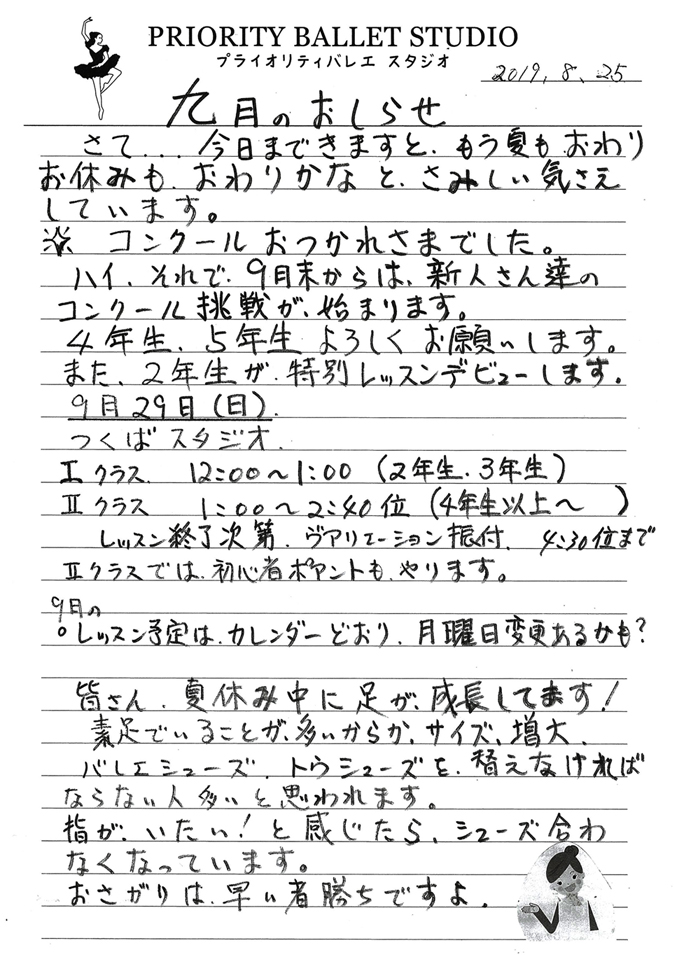 PRIORITY BALLET STUDIO
プライオリティバレエ スタジオ
2019, 8, 25
九月のおしらせ
さて... 今日まできますと、もう夏も、おわり
お休みも、おわりかなと、さみしい気さえ
しています。
※ コンクールおつかれさまでした。
ハイ、それで、9月末からは、新人さん達の
コンクール挑戦が、始まります。
4年生、5年生 よろしくお願いします。
また、2年生が、特別レッスンデビューします。
9月29日(日)
つくばスタジオ
Ⅰクラス 12:00〜1:00 (2年生、3年生)
Ⅱクラス 1:00〜2:40位 (4年生以上〜 )
レッスン終了次第、ヴァリエーション振付、4:30位まで
Ⅱクラスでは、初心者ポアントも、やります。
9月の
○レッスン予定は、カレンダーどおり、月曜日変更あるかも?
皆さん、夏休み中に足が、成長してます!
素足でいることが、多いからか、サイズ、増大、
バレエシューズ、トウシューズを、替えなければ
ならない人多いと思われます。
指が、いたい!と感じたら、シューズ合わ
なくなっています。
おさがりは、早い者勝ちですよ。